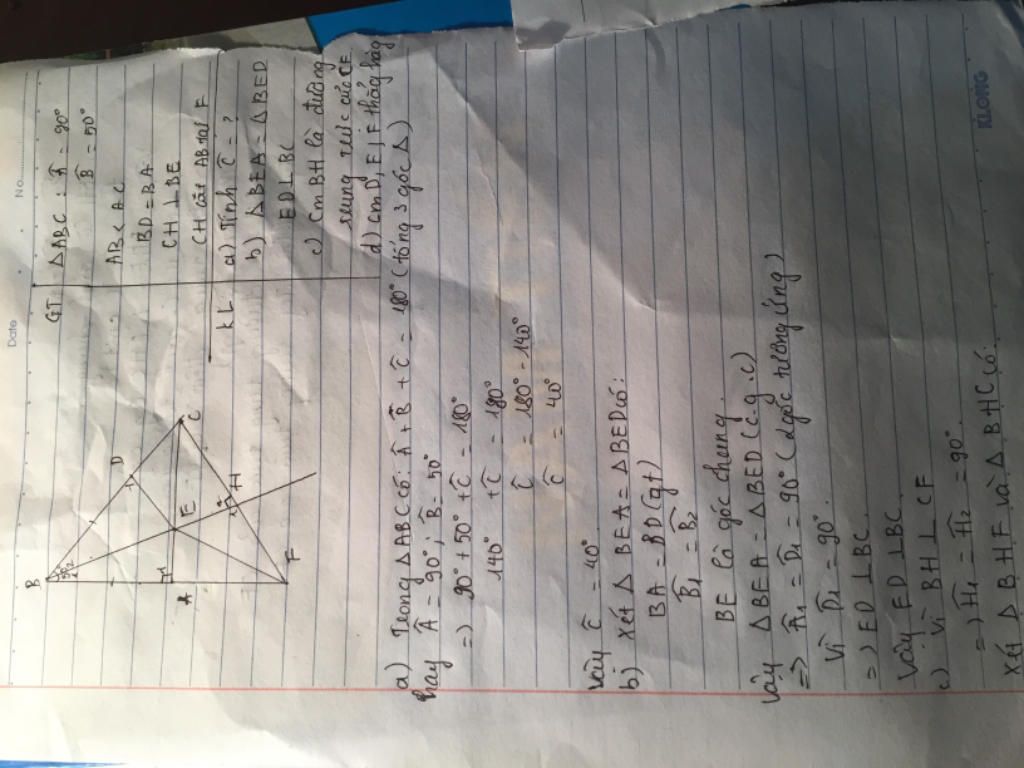 Date
No
B
D
E
C
A
H
F
GT
ΔABC: Â = 90°
B̂ = 50°
AB < AC
BD = BA
CH ⊥ BE
CH cắt AB tại F
KL
a) Tính Ĉ = ?
b) ΔBEA = ΔBED
ED ⊥ BC
c) Cm BH là đường
trung trực của CF
d) Cm D, E, F thẳng hàng
a) Trong ΔABC có: Â + B̂ + Ĉ = 180° (tổng 3 góc Δ)
thay Â = 90°; B̂ = 50°
=> 90° + 50° + Ĉ = 180°
140° + Ĉ = 180°
Ĉ = 180° - 140°
Ĉ = 40°
Vậy Ĉ = 40°
b) Xét Δ BEA = ΔBED có:
BA = BD (gt)
B̂₁ = B̂₂
BE là góc chung
Vậy ΔBEA = ΔBED (c.g.c)
=> Â₁ = D̂₁ = 90° (2 góc tương ứng)
Vì D̂₁ = 90°
=> ED ⊥ BC
Vậy ED ⊥ BC
c) Vì BH ⊥ CF
=> Ĥ₁ = Ĥ₂ = 90°
Xét ΔBHF và ΔBHC có:
KLONG